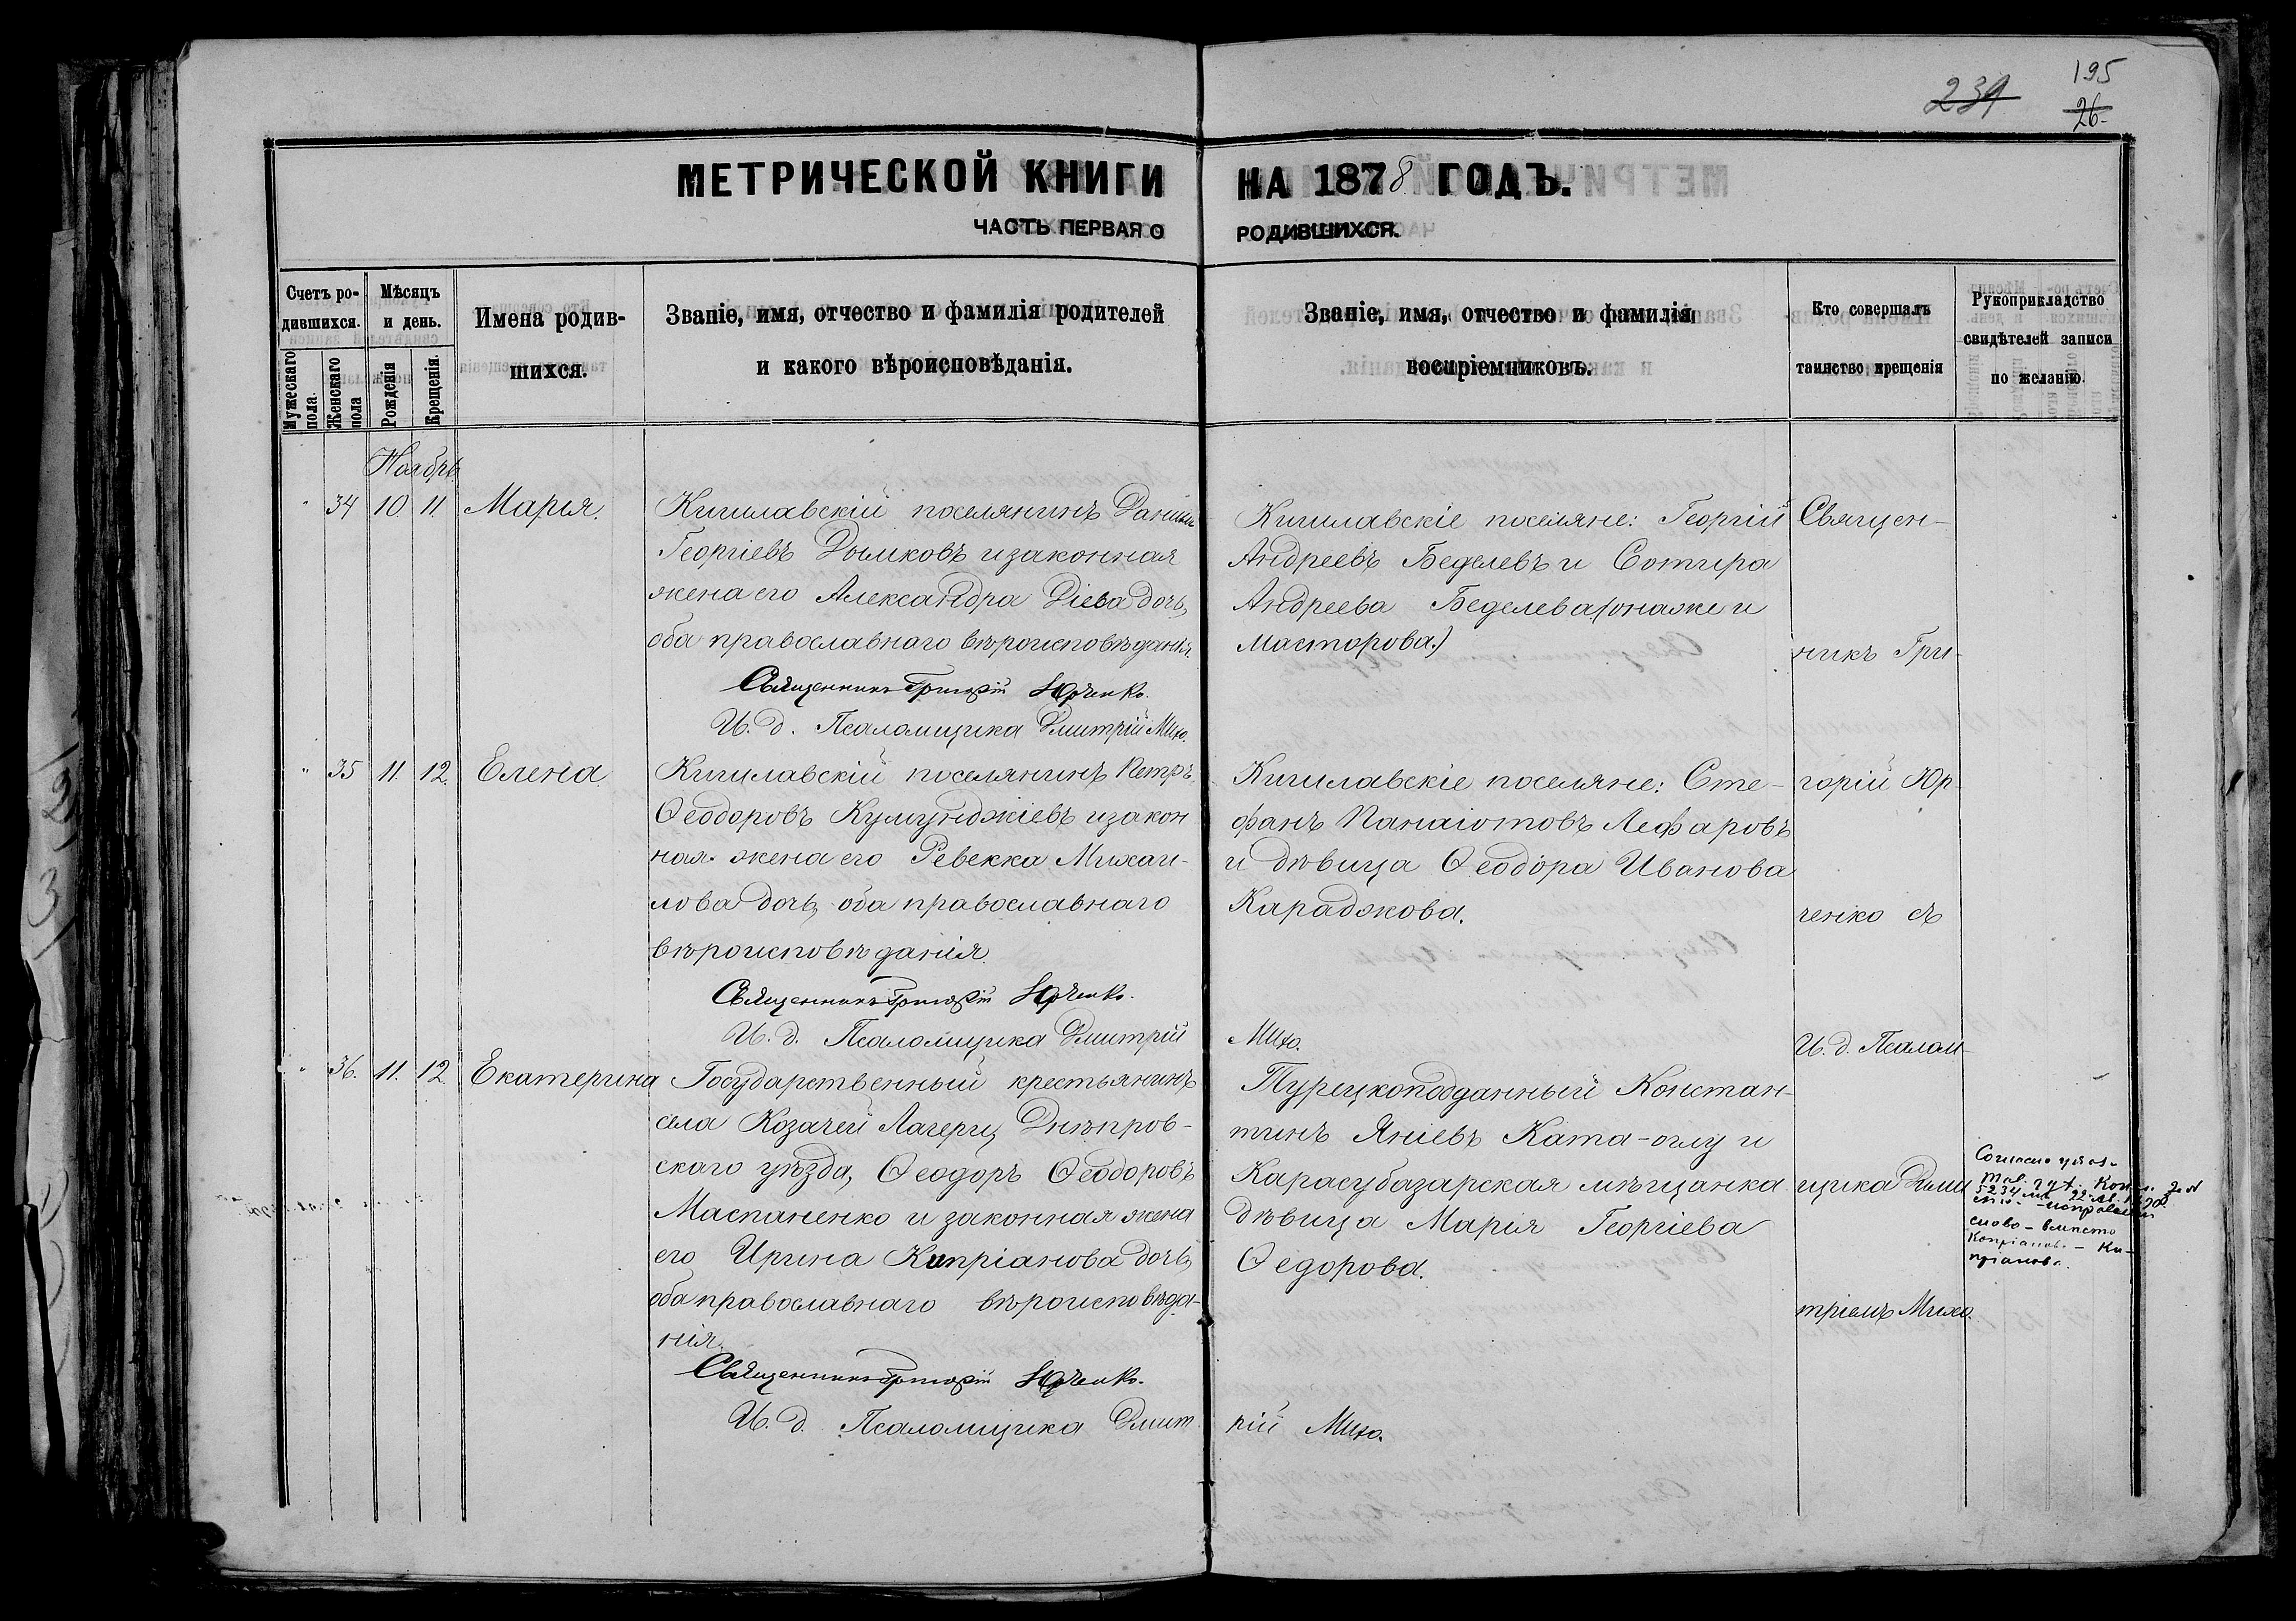 195
231
26.
МЕТРИЧЕСКОЙ КНИГИ НА 1878 ГОДЪ.
ЧАСТЬ ПЕРВАЯ О РОДИВШИХСЯ.
Счетъ ро-
дившихся.
Мужескаго пола.
Женскаго пола
Мѣсяцъ
и день.
Рожденія
Крещенія.
Имена родив-
шихся.
Званіе, имя, отчество и фамилія родителей
и какого вѣроисповѣданія.
Званіе, имя, отчество и фамилія
воспріемниковъ.
Кто совершалъ
таинство крещенія
Рукоприкладство
свидѣтелей записи
по желанію.
Ноябрь
" 34 10 11. Марія.
Кишлавскій поселянинъ Даніилъ
Георгіевъ Дымковъ и законная
жена его Александра Діева дочь,
оба православнаго вѣроисповѣданія.
Священникъ Григорій Юрченко.
И. д. Псаломщика Дмитрій Михо.
Кишлавскіе поселяне: Георгій
Андреевъ Беделевъ и Сотира
Андреева Беделева (она же и
Масторова.)
" 35 11. 12. Елена.
Кишлавскій поселянинъ Петръ
Ѳеодоровъ Кумунджіевъ и закон
ная жена его Ревекка Михаи-
лова дочь, оба православнаго
вѣроисповѣданія.
Священникъ Григорій Юрченко.
И. д. Псаломщика Дмитрій Михо.
Кишлавскіе поселяне: Сте-
фанъ Панаіотовъ Лефаровъ
и дѣвица Ѳеодора Иванова
Караджова.
" 36. 11. 12. Екатерина
Государственный крестьянинъ
села Козачей Лагери, Днѣпров-
скаго уѣзда, Ѳеодоръ Ѳеодоровъ
Маспаненко и законная жена
его Ирина Кипріанова дочь,
оба православнаго вѣроисповѣда-
нія.
Священникъ Григорій Юрченко.
И. д. Псаломщика Дмит
рій Михо.
Турецкоподданный Констан-
тинъ Яніевъ Ката-оглу и
Карасубазарская мѣщанка
дѣвица Марія Георгіева
Ѳедорова.
Священ-
никъ Гри-
горій Юр
ченко съ
И. д. Псалом-
щика Дими
тріемъ Михо.
слово - вмѣсто
Копріанова - Ки-
пріанова.